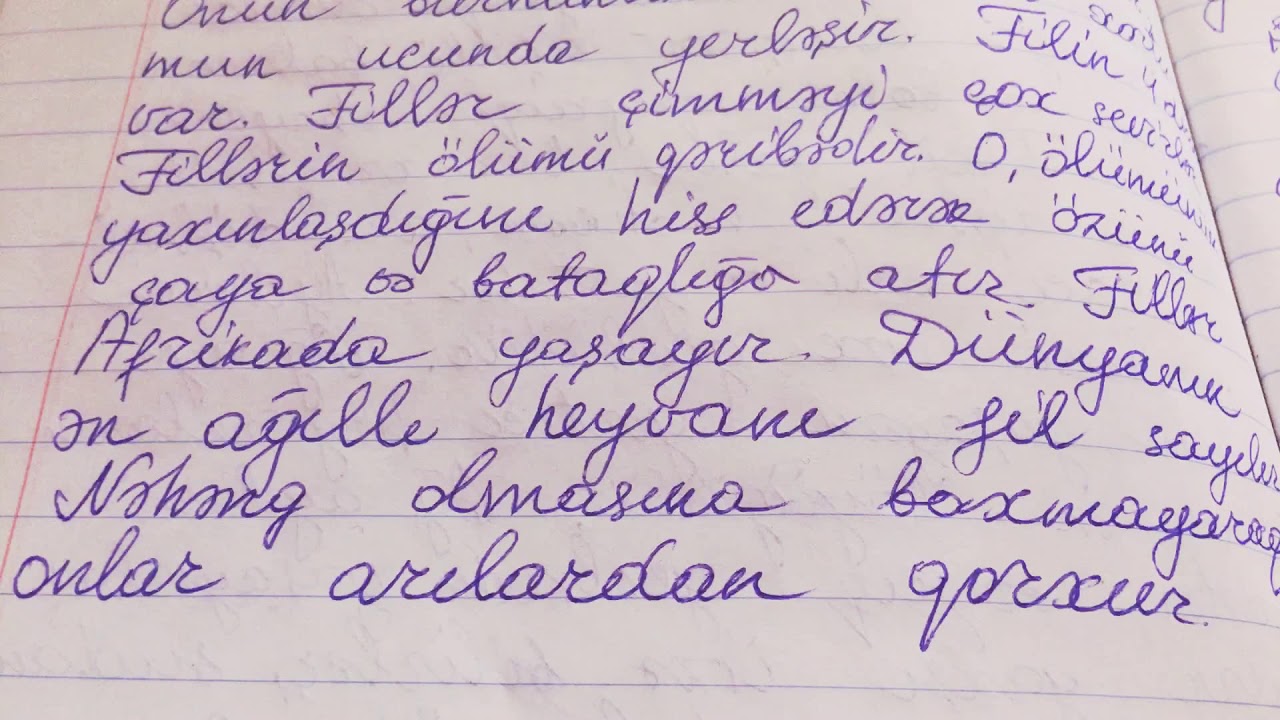 Onun
mun ucunda yerləşir. Filin
var. Fillər çimməyi çox sevirlər
Fillərin ölümü qəribədir. O, ölümünün
yaxınlaşdığını hiss edərək özünü
çaya və bataqlığa atır. Fillər
Afrikada yaşayır. Dünyanın
ən ağıllı heyvanı fil sayılır
Nəhəng olmasına baxmayaraq
onlar arılardan qorxur.